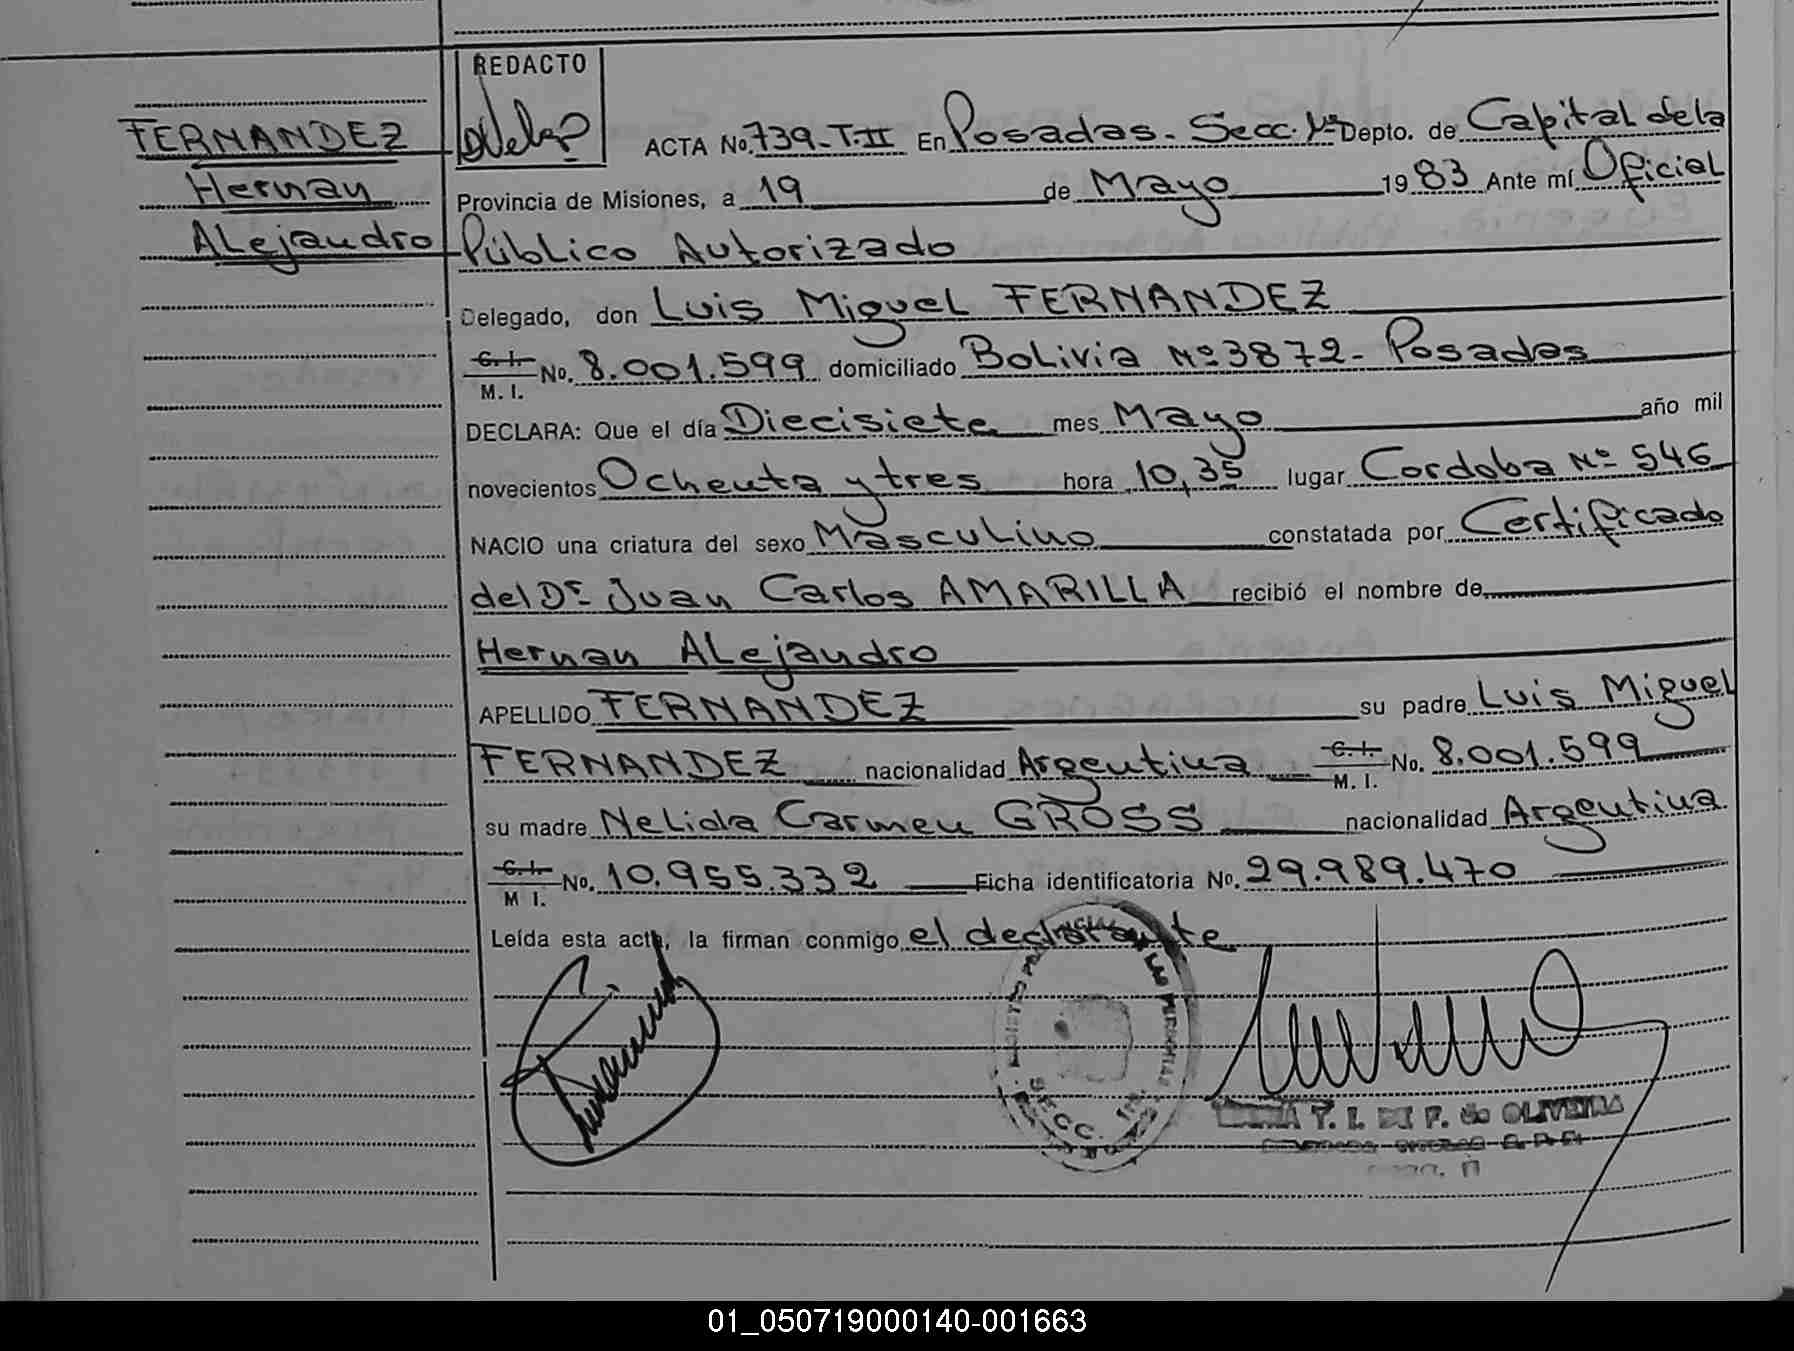 REDACTO
FERNANDEZ
Hernan
ALejandro
ACTA No. 739-T.II En Posadas - Secc. 1ra Depto. de Capital de la
Provincia de Misiones, a 19 de Mayo 1983 Ante mí Oficial
Público Autorizado
Delegado, don Luis Miguel FERNANDEZ
C. I. M. I. No. 8.001.599 domiciliado Bolivia Nº 3872 - Posadas
DECLARA: Que el día Diecisiete mes Mayo año mil
novecientos Ochenta y tres hora 10,35 lugar Cordoba Nº 546
NACIO una criatura del sexo Masculino constatada por Certificado
del Dr. Juan Carlos AMARILLA recibió el nombre de
Hernan ALejandro
APELLIDO FERNANDEZ su padre Luis Miguel
FERNANDEZ nacionalidad Argentina C. I. M. I. No. 8.001.599
su madre NeLida Carmen GROSS nacionalidad Argentina
C. I. M I. No. 10.955.332 Ficha identificatoria No. 29.989.470
Leída esta acta, la firman conmigo el declarante
SECC.
T. I. DE F. de OLIVEIRA
01_050719000140-001663